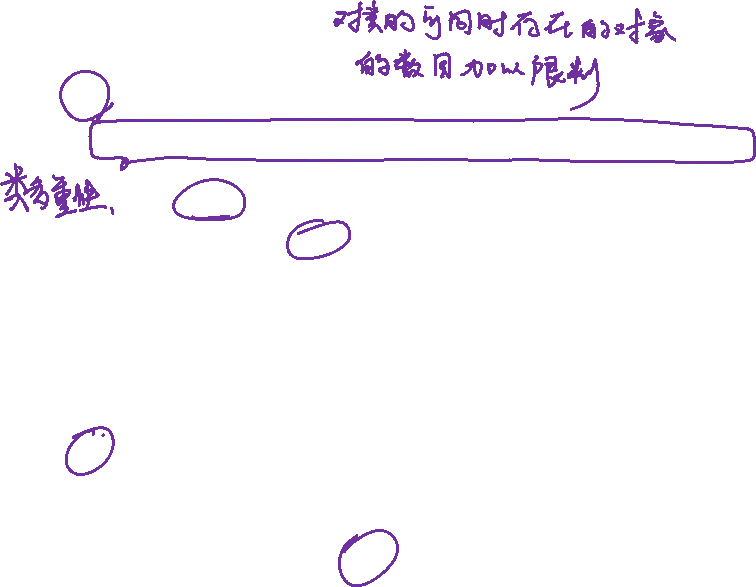 对类的可同时存在的对象
的数目加以限制
类多重性、